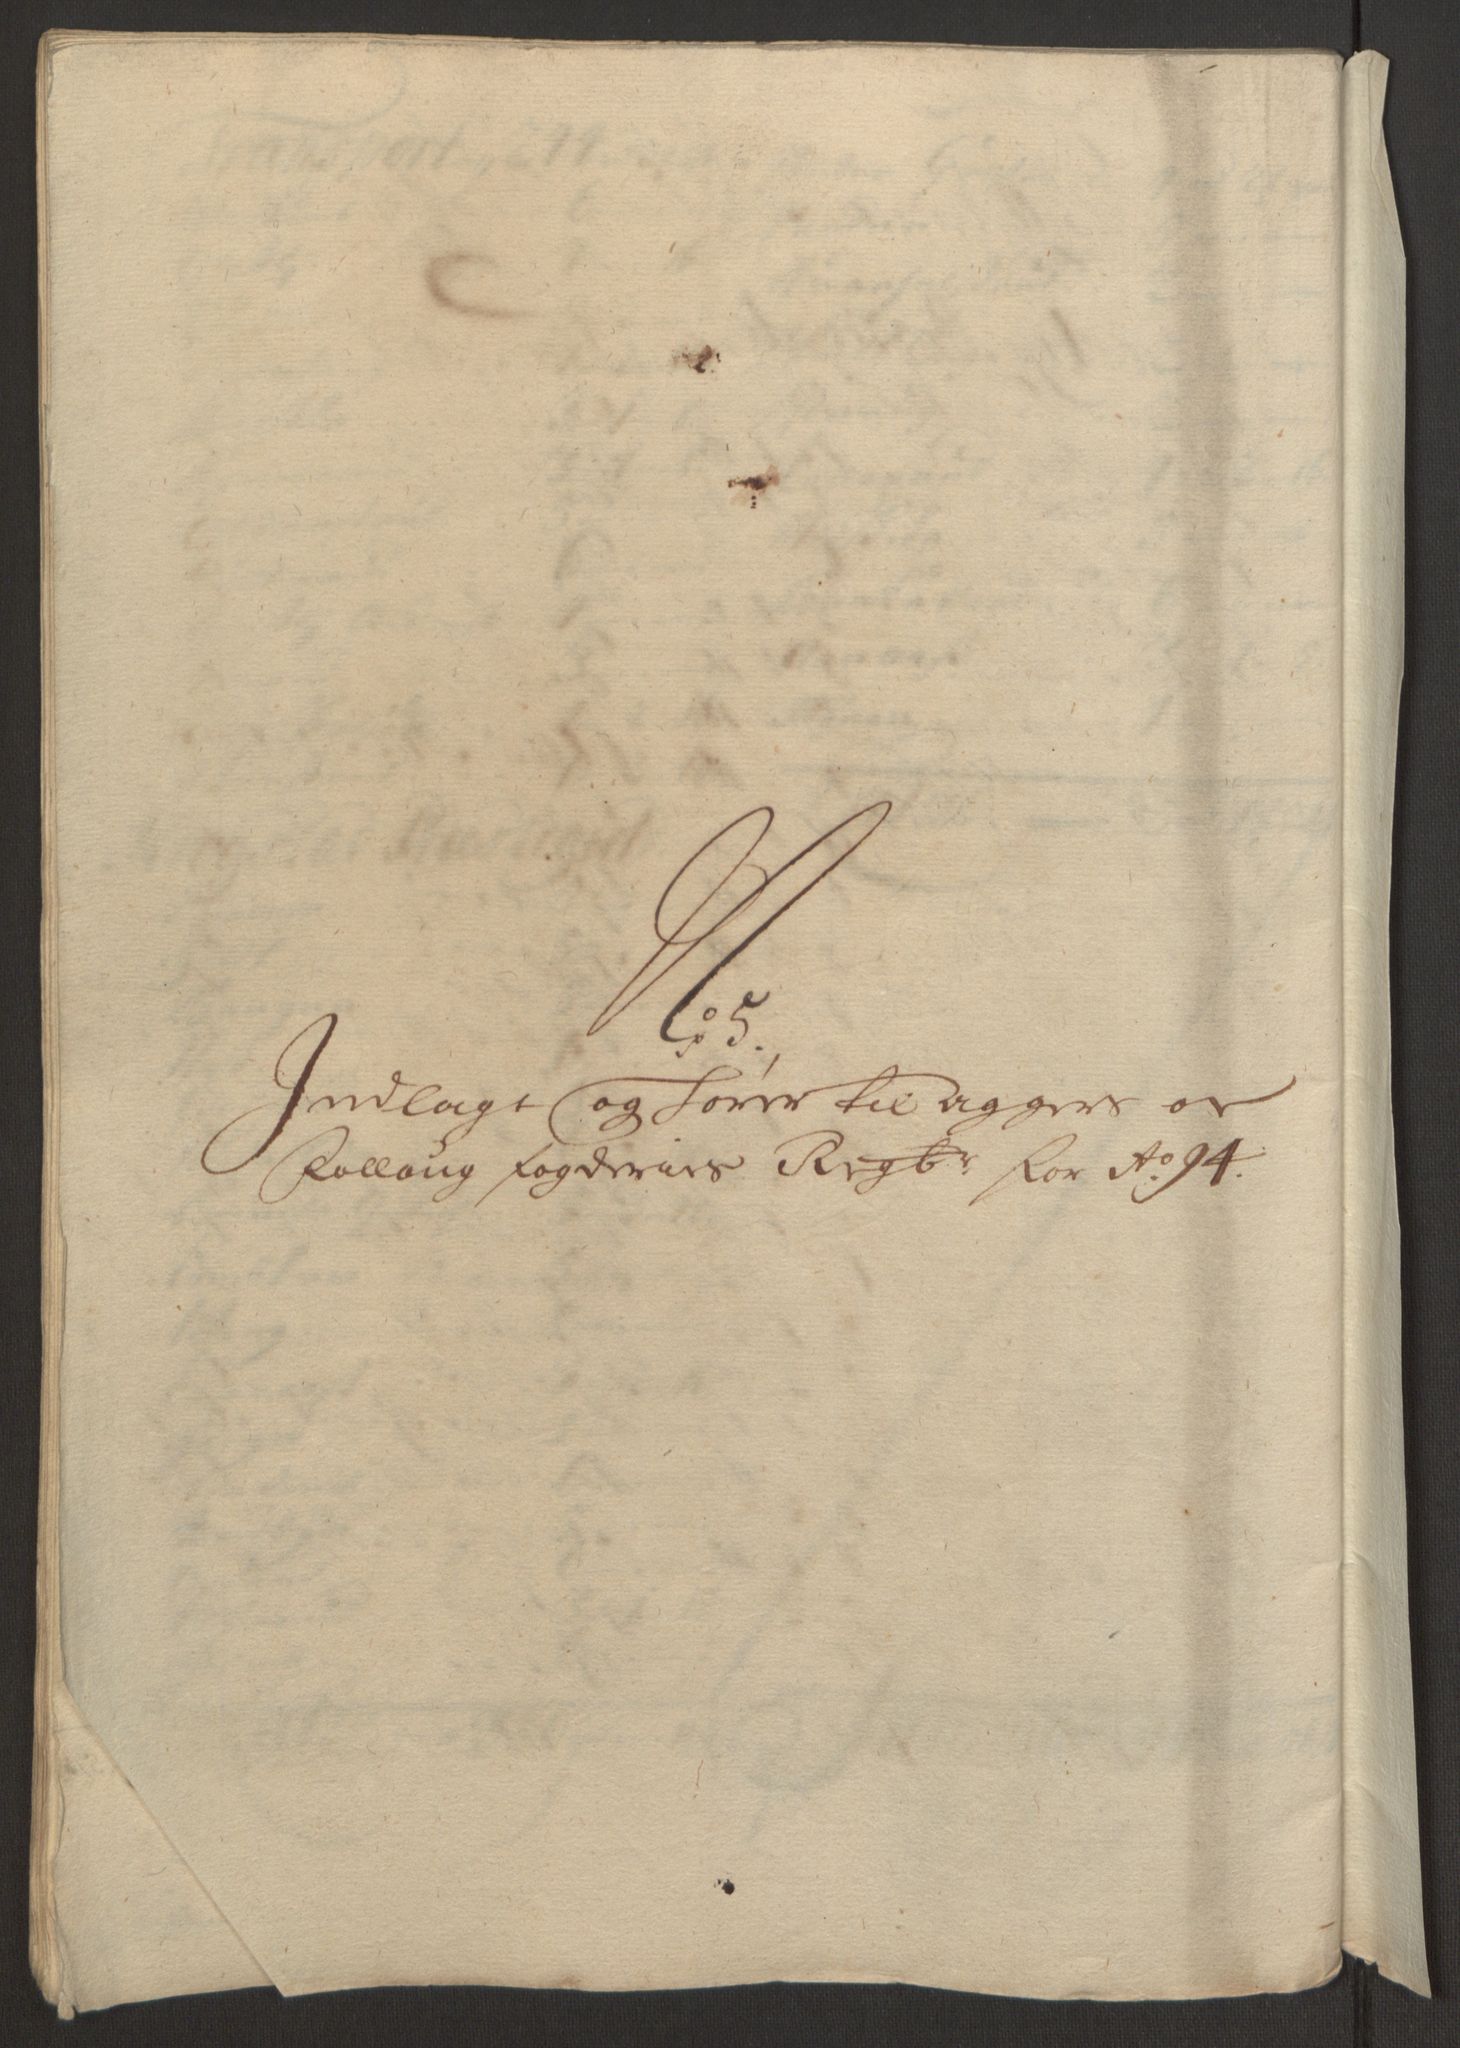 No: 5.
Indlagt og hører til Aggers og
Folloug fogderies Regbr for Ao. 94.